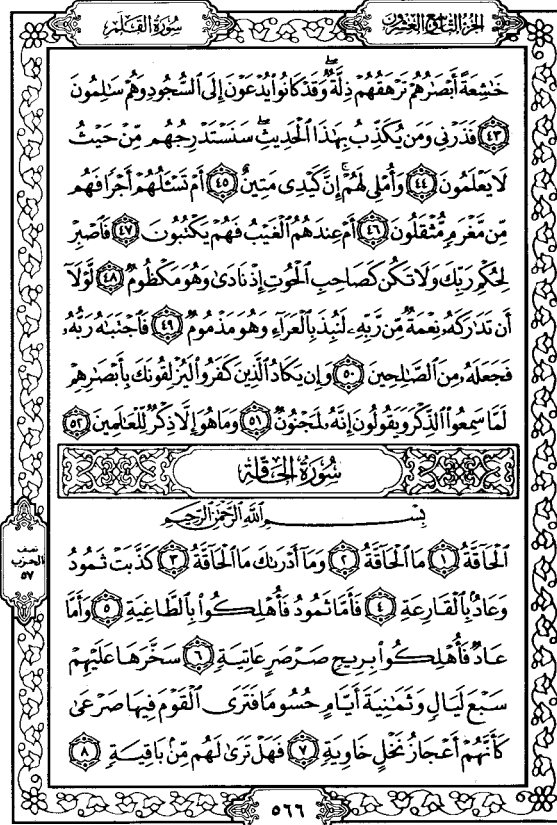 سُورَةُ القَلَمِ
الجُزْءُ التَّاسِعُ وَالعِشْرُونَ
خَٰشِعَةً أَبْصَٰرُهُمْ تَرْهَقُهُمْ ذِلَّةٌ ۖ وَقَدْ كَانُوا۟ يُدْعَوْنَ إِلَى ٱلسُّجُودِ وَهُمْ سَٰلِمُونَ
﴿٤٣﴾ فَذَرْنِى وَمَن يُكَذِّبُ بِهَٰذَا ٱلْحَدِيثِ ۖ سَنَسْتَدْرِجُهُم مِّنْ حَيْثُ
لَا يَعْلَمُونَ ﴿٤٤﴾ وَأُمْلِى لَهُمْ ۚ إِنَّ كَيْدِى مَتِينٌ ﴿٤٥﴾ أَمْ تَسْـَٔلُهُمْ أَجْرًا فَهُم
مِّن مَّغْرَمٍ مُّثْقَلُونَ ﴿٤٦﴾ أَمْ عِندَهُمُ ٱلْغَيْبُ فَهُمْ يَكْتُبُونَ ﴿٤٧﴾ فَٱصْبِرْ
لِحُكْمِ رَبِّكَ وَلَا تَكُن كَصَاحِبِ ٱلْحُوتِ إِذْ نَادَىٰ وَهُوَ مَكْظُومٌ ﴿٤٨﴾ لَّوْلَآ
أَن تَدَٰرَكَهُۥ نِعْمَةٌ مِّن رَّبِّهِۦ لَنُبِذَ بِٱلْعَرَآءِ وَهُوَ مَذْمُومٌ ﴿٤٩﴾ فَٱجْتَبَٰهُ رَبُّهُۥ
فَجَعَلَهُۥ مِنَ ٱلصَّٰلِحِينَ ﴿٥٠﴾ وَإِن يَكَادُ ٱلَّذِينَ كَفَرُوا۟ لَيُزْلِقُونَكَ بِأَبْصَٰرِهِمْ
لَمَّا سَمِعُوا۟ ٱلذِّكْرَ وَيَقُولُونَ إِنَّهُۥ لَمَجْنُونٌ ﴿٥١﴾ وَمَا هُوَ إِلَّا ذِكْرٌ لِّلْعَٰلَمِينَ ﴿٥٢﴾
سُورَةُ الحَاقَّةِ
بِسْمِ ٱللَّهِ ٱلرَّحْمَٰنِ ٱلرَّحِيمِ
ٱلْحَآقَّةُ ﴿١﴾ مَا ٱلْحَآقَّةُ ﴿٢﴾ وَمَآ أَدْرَىٰكَ مَا ٱلْحَآقَّةُ ﴿٣﴾ كَذَّبَتْ ثَمُودُ
وَعَادٌۢ بِٱلْقَارِعَةِ ﴿٤﴾ فَأَمَّا ثَمُودُ فَأُهْلِكُوا۟ بِٱلطَّاغِيَةِ ﴿٥﴾ وَأَمَّا
عَادٌ فَأُهْلِكُوا۟ بِرِيحٍ صَرْصَرٍ عَاتِيَةٍ ﴿٦﴾ سَخَّرَهَا عَلَيْهِمْ
سَبْعَ لَيَالٍ وَثَمَٰنِيَةَ أَيَّامٍ حُسُومًا فَتَرَى ٱلْقَوْمَ فِيهَا صَرْعَىٰ
كَأَنَّهُمْ أَعْجَازُ نَخْلٍ خَاوِيَةٍ ﴿٧﴾ فَهَلْ تَرَىٰ لَهُم مِّنۢ بَاقِيَةٍ ﴿٨﴾
نصف
الحزب
٥٧
٥٦٦